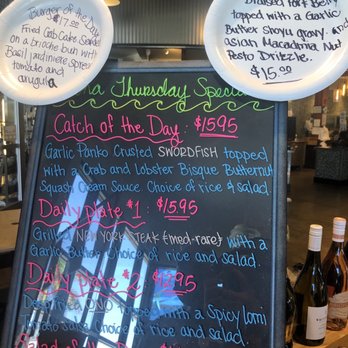 Burger of the Day
$17.00
Fried Crab Cake Sandwich
on a brioche bun with
Basil jardiniere spread
tomato and
arugula
Braised Pork Belly
topped with a Garlic
Butter Shoyu gravy and
Asian Macadamia Nut
Pesto Drizzle.
$15.00
Thursday Specials
Catch of the Day: $15.95
Garlic Panko Crusted SWORDFISH topped
with a Crab and Lobster Bisque Butternut
Squash Cream Sauce. Choice of rice & salad.
Daily Plate #1: $15.95
Grilled NEW YORK STEAK (med-rare) with a
Garlic Butter. Choice of rice and salad.
Daily Plate #2: $13.95
ONO topped with a Spicy Lomi
Tomato Salsa. Choice of rice and salad.
Salad of the Day